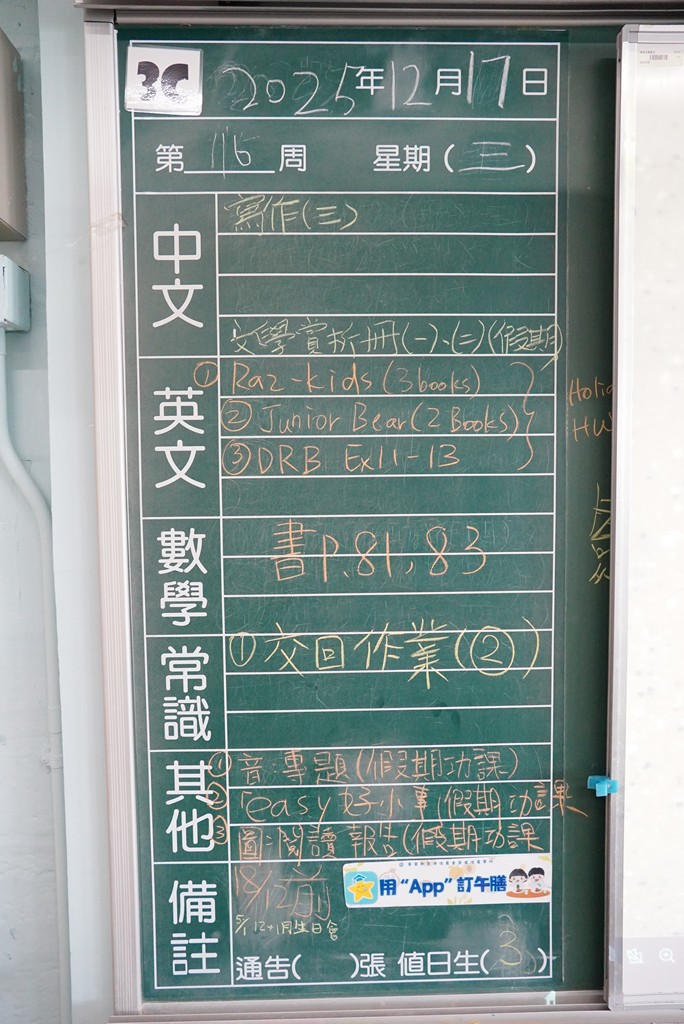 3C 2025年12月17日
第 16 周 星期(三)
中文
寫作(三)
文學賞析冊(一)、(二)(假期)
英文
① Raz-kids (3 books)
② Junior Bear (2 Books)
③ DRB Ex11-13
Holi
HW
數學
書P.81, 83
常識
① 交回作業(②)
其他
① 音:專題(假期功課)
② 「easy好小事」假期功課
③ 圖:閱讀報告(假期功課
備註
18/12前
用“App”訂午膳
5/1 12+1月生日會
通告( )張 值日生( 3 )